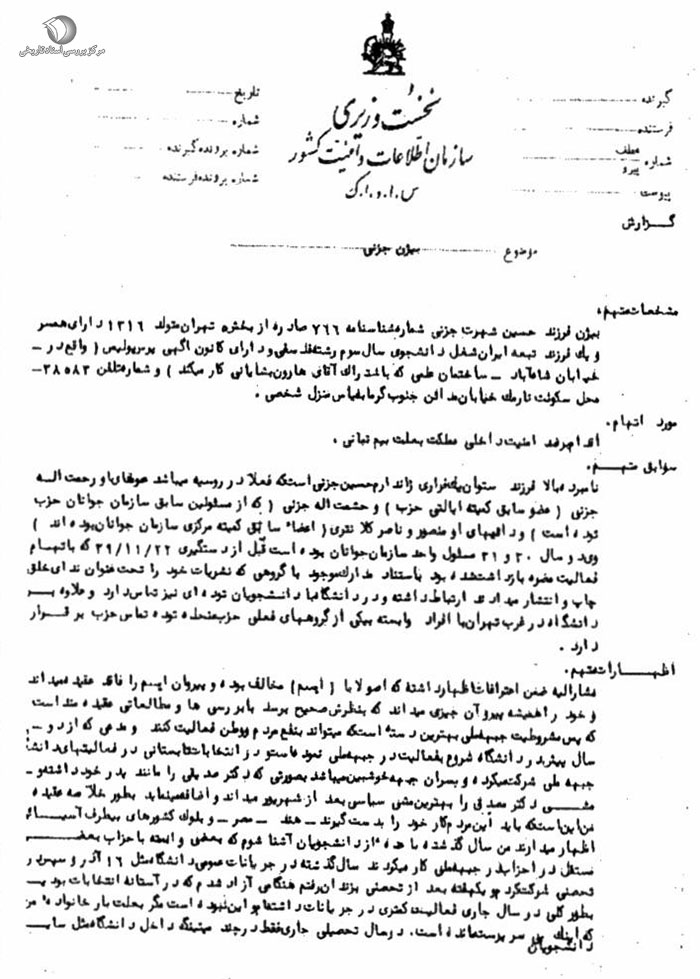 مرکز بررسی اسناد تاریخی
نخست وزیری
سازمان اطلاعات و امنیت کشور
س.ا.و.ا.ک
گیرنده
فرستنده
شماره عطف
پیرو
پیوست
تاریخ
شماره
شماره پرونده گیرنده
شماره پرونده فرستنده
گزارش
موضوع بیژن جزنی
مشخصات متهم:
بیژن فرزند حسین شهرت جزنی شماره شناسنامه ۷۶۶ صادره از بخش ۵ تهران متولد ۱۳۱۶ دارای همسر
و یک فرزند تبعه ایران شغل دانشجوی سال سوم رشته فلسفی و دارای کانون آگهی پرسپولیس (واقع در -
خیابان شاه آباد - ساختمان طبی که باشتراک آقای هارون یشایائی کار میکند) و شماره تلفن ۳۸۵۸۳-
محل سکونت نارمک خیابان مدائن جنوب گرمابه یاس منزل شخصی.
مورد اتهام.
اقدام بر ضد امنیت داخلی مملکت بعلت بیم تبانی.
سوابق متهم.
نامبرده بالا فرزند ستوان یک فراری ژاندارم حسین جزنی است که فعلا در روسیه میباشد عموهای او رحمت اله
جزنی (عضو سابق کمیته ایالتی حزب) و حشمت اله جزنی (که از مسئولین سابق سازمان جوانان حزب
توده است) و دائیهای او منصور و ناصر کلانتری (اعضاء سابق کمیته مرکزی سازمان جوانان بوده اند)
وی در سال ۳۰ و ۳۱ مسئول واحد سازمان جوانان بوده است قبل از دستگیری ۳۹/۱۱/۲۲ که باتهام
فعالیت مضره بازداشت شده بود باستناد مدارک موجود با گروهی که نشریات خود را تحت عنوان ندای خلق
چاپ و انتشار میدادند ارتباط داشته و در دانشگاه با دانشجویان توده ای نیز تماس دارد و علاوه بر
دانشگاه در غرب تهران با افراد وابسته بیکی از گروههای فعلی حزب منحله توده تماس حزب بر قرار
دارد.
اظهارات متهم.
مشارالیه ضمن اعترافات اظهار داشته که اصولا با (ایسم) مخالف بوده و پیروان ایسم را فاقد عقیده میداند
و خود را همیشه پیرو آن چیزی میداند که بنظرش صحیح برسد با بررسی ها و مطالعاتی عقیده مند است
که پس مشروطیت جبهه ملی بهترین دسته است که میتواند بنفع مردم و وطن فعالیت کنند و مدعی که از دو -
سال پیش در دانشگاه شروع بفعالیت در جبهه ملی نموده است و در انتخابات تابستانی در فعالیتهای دانشگاه
جبهه ملی شرکت میکرده و بسران جبهه خوشبین میباشد بصورتی که دکتر صدیقی را مانند پدر خود داشته و -
مشی دکتر مصدق را بهترین مشی سیاسی بعد از شهریور میداند و اضافه مینماید بطور خلاصه عقیده
من این است که باید این مردم کار خود را بدست گیرند - هند - مصر - و بلوک کشورهای بیطرف آسیائی
اظهار میدارند من سال گذشته با عده ای از دانشجویان آشنا شوم که بعضی وابسته با حزاب بعضی
مستقل در احزاب در جبهه ملی کار میکردند سال گذشته در جریانات عمومی دانشگاه مثل ۱۶ آذر و سپس در
تحصنی شرکت کردم و یکهفته بعد از تحصنی بزندان رفتم هنگامی آزاد شدم که در آستانه انتخابات بود
بطور کلی در سال جاری فعالیت کمتری در جریانات داشته ام و این نبوده است مگر بعلت بار خانواده من
که اینک پسر بوسته مانده است. در سال تحصیلی جاری فقط در چند میتینگ داخل دانشگاه مثل سایر
دانشجویان